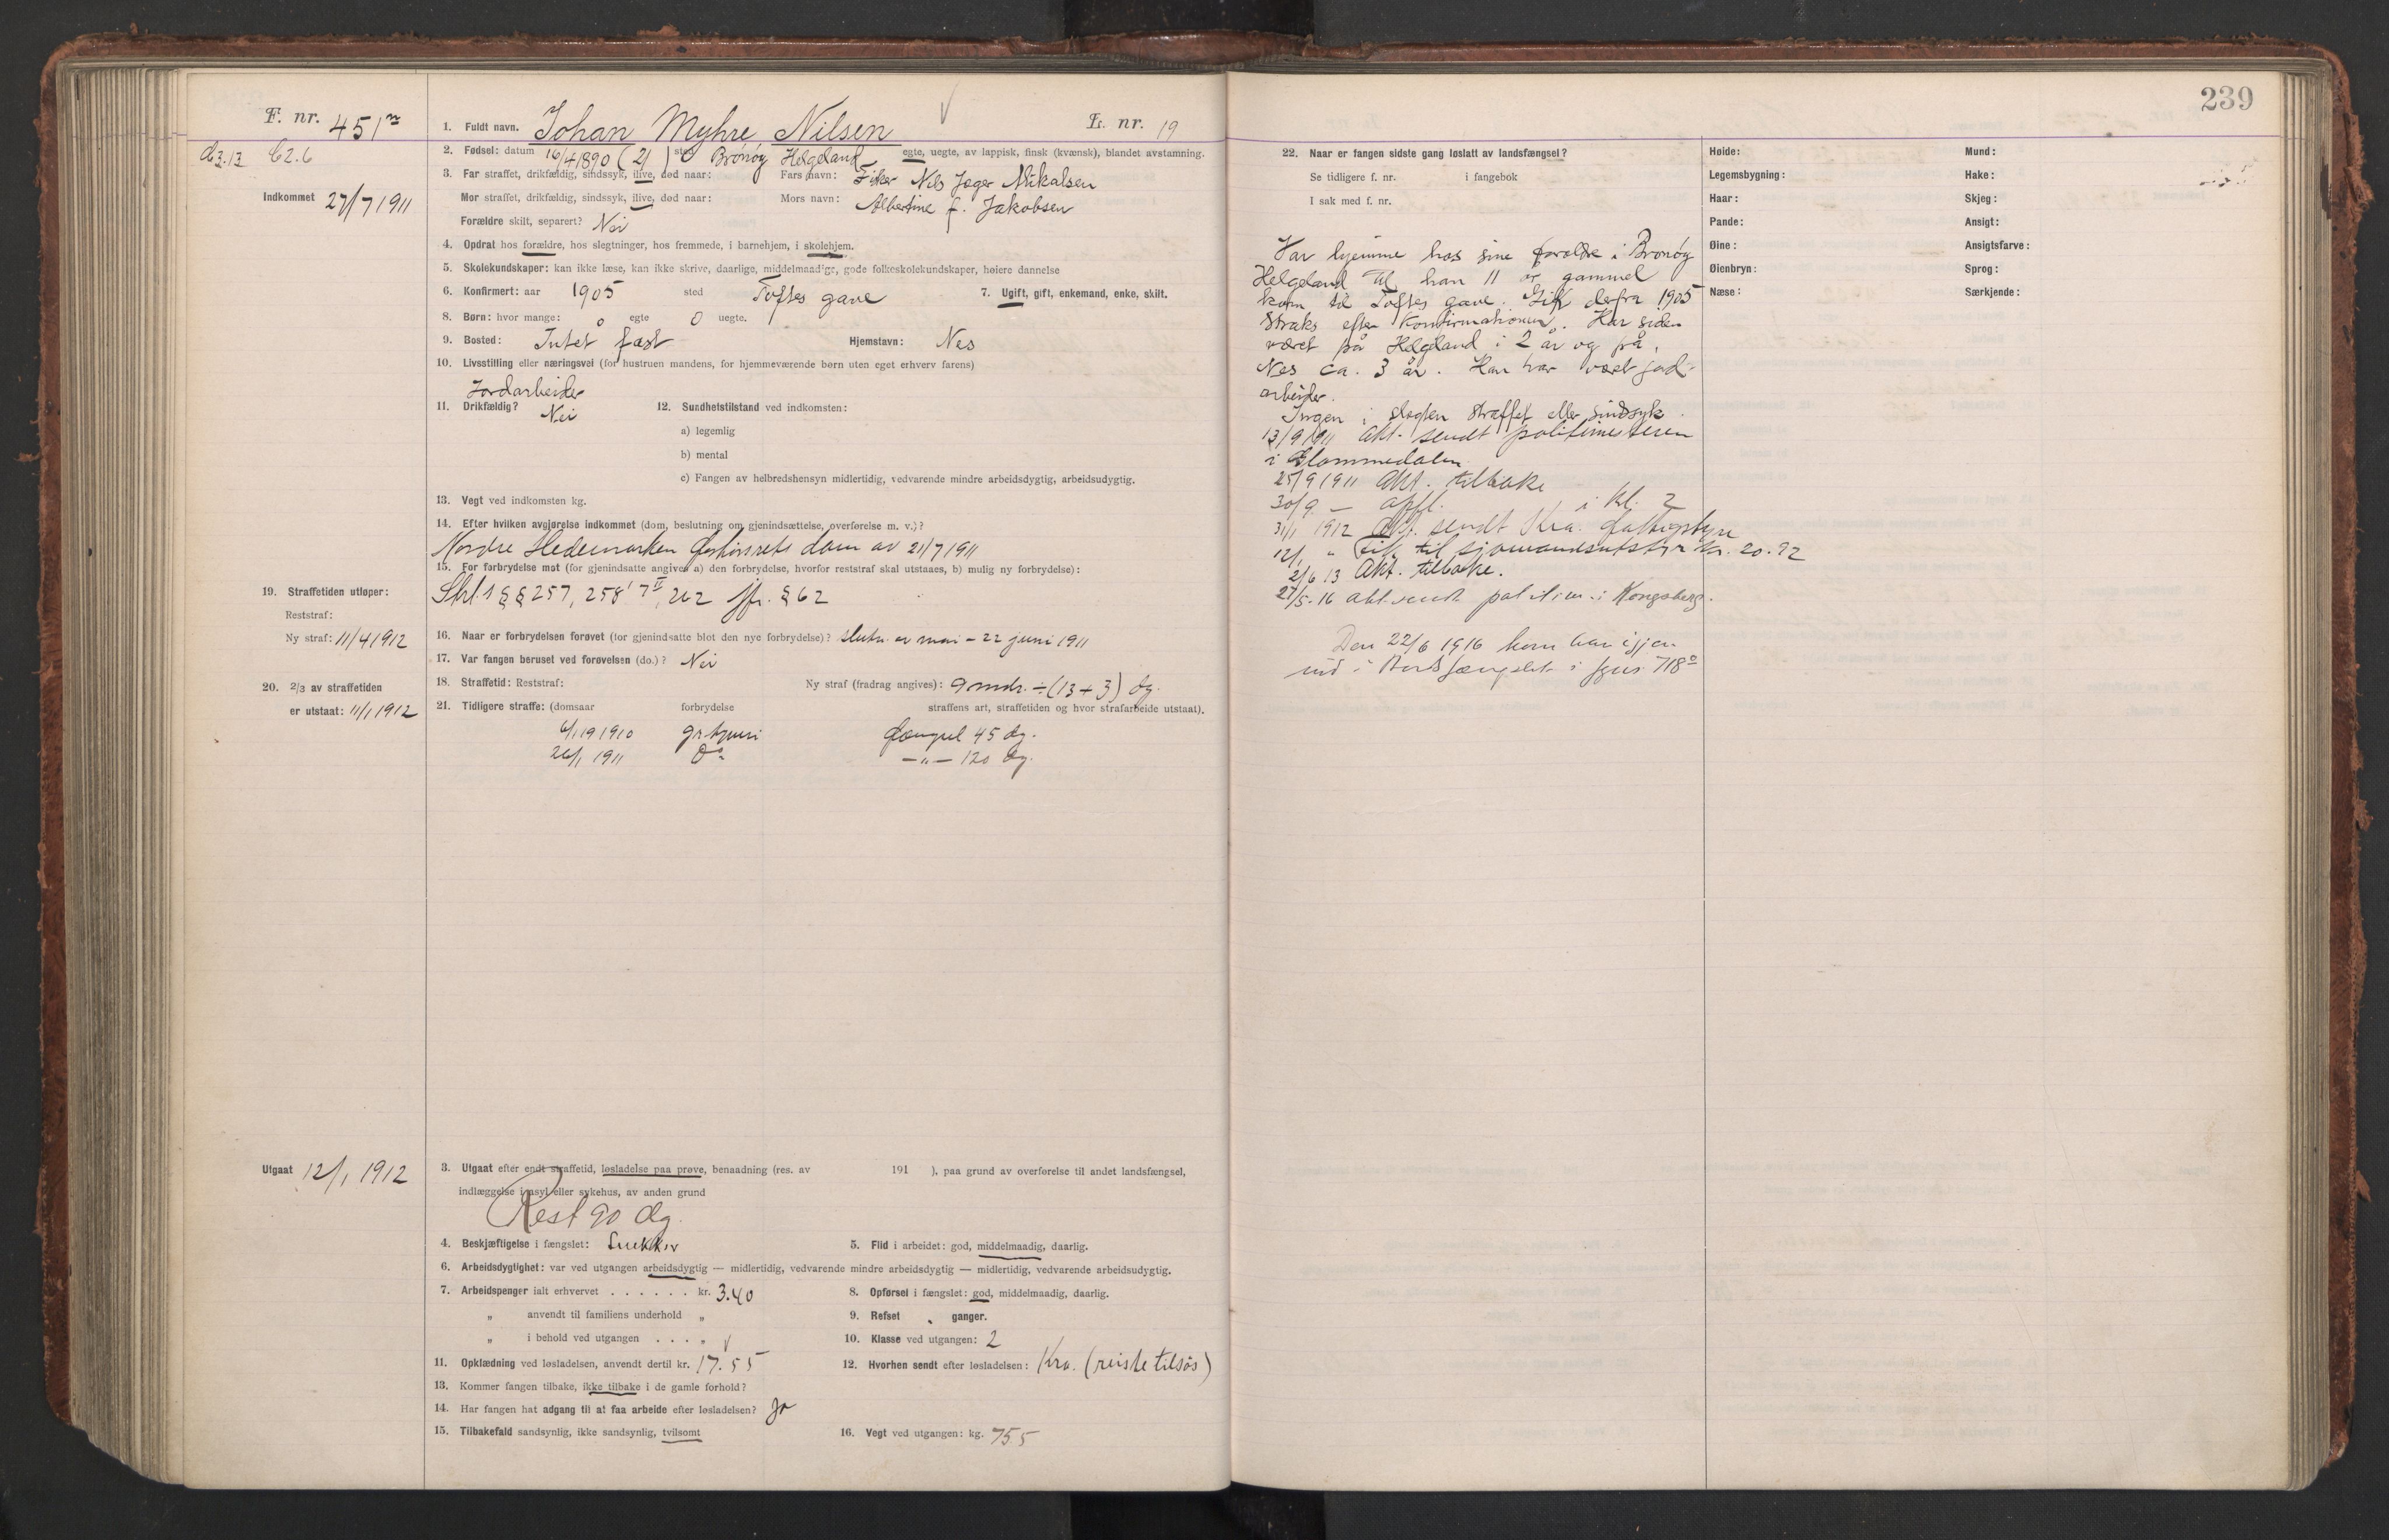 F. nr. 451
1. Fuldt navn. Johan Myhre Nilsen L. nr. 19
C2.6
2. Fødsel: datum 16/4 1890 (21) sted Brönöy Helgeland egte, uegte, av lappisk, finsk (kvænsk), blandet avstamning.
3. Far straffet, drikfældig, sindssyk, ilive, død naar: Fars navn: Fisker Nils Jæger Mikalsen
Indkommet 27/7 1911
Mor straffet, drikfældig, sindssyk, ilive, død naar: Mors navn: Albertine f. Jakobsen
Forældre skilt, separert? Nei
4. Opdrat hos forældre, hos slegtninger, hos fremmede, i barnehjem, i skolehjem.
5. Skolekundskaper: kan ikke læse, kan ikke skrive, daarlige, middelmaadige, gode folkeskolekundskaper, høiere dannelse
6. Konfirmert: aar 1905 sted Toftes gave 7. Ugift, gift, enkemand, enke, skilt.
8. Børn: hvor mange: 0 egte 0 uegte.
9. Bosted: Intet fast Hjemstavn: Nes
10. Livsstilling eller næringsvei (for hustruen mandens, for hjemmeværende børn uten eget erhverv farens)
Jordarbeider
11. Drikfældig? Nei 12. Sundhetstilstand ved indkomsten:
a) legemlig
b) mental
c) Fangen av helbredshensyn midlertidig, vedvarende mindre arbeidsdygtig, arbeidsudygtig.
13. Vegt ved indkomsten kg.
14. Efter hvilken avgjørelse indkommet (dom, beslutning om gjenindsættelse, overførelse m. v.)?
Nordre Hedemarken forhörsrets dom av 21/7 1911
15. For forbrydelse mot (for gjenindsatte angives a) den forbrydelse, hvorfor reststraf skal utstaaes, b) mulig ny forbrydelse):
Strl.s §§ 257, 258, 262 jfr. § 62
19. Straffetiden utløper:
Reststraf:
Ny straf: 11/4 1912
16. Naar er forbrydelsen forøvet (for gjenindsatte blot den nye forbrydelse)? slutn. av mai – 22 juni 1911
17. Var fangen beruset ved forøvelsen (do.)? Nei
20. 2/3 av straffetiden
er utstaat: 11/1 1912
18. Straffetid: Reststraf: Ny straf (fradrag angives): 9 mdr. ÷ (13 + 3) dg.
21. Tidligere straffe: (domsaar forbrydelse straffens art, straffetiden og hvor strafarbeide utstaat).
1910 gr. tyveri Fængsel 45 dg.
26/1 1911 Do –"– 120 dg.
Utgaat 12/1 1912
3. Utgaat efter endt straffetid, løsladelse paa prøve, benaadning (res. av 191 ), paa grund av overførelse til andet landsfængsel,
indlæggelse i asyl eller sykehus, av anden grund
Rest 90 dg.
4. Beskjæftigelse i fængslet: Snekker 5. Flid i arbeidet: god, middelmaadig, daarlig.
6. Arbeidsdygtighet: var ved utgangen arbeidsdygtig — midlertidig, vedvarende mindre arbeidsdygtig — midlertidig, vedvarende arbeidsudygtig.
7. Arbeidspenger ialt erhvervet . . . . . . kr. 3.40 8. Opførsel i fængslet: god, middelmaadig, daarlig.
„ anvendt til familiens underhold „ 9. Refset ganger.
„ i behold ved utgangen . . . „ 10. Klasse ved utgangen: 2
11. Opklædning ved løsladelsen, anvendt dertil kr. 17.55 12. Hvorhen sendt efter løsladelsen: Kra. (reiste tilsös)
13. Kommer fangen tilbake, ikke tilbake i de gamle forhold?
14. Har fangen hat adgang til at faa arbeide efter løsladelsen? Ja
15. Tilbakefald sandsynlig, ikke sandsynlig, tvilsomt 16. Vegt ved utgangen: kg. 755
239
22. Naar er fangen sidste gang løslatt av landsfængsel?
Se tidligere f. nr. i fangebok
I sak med f. nr.
Høide: Mund:
Legemsbygning: Hake:
Haar: Skjeg:
Pande: Ansigt:
Øine: Ansigtsfarve:
Øienbryn: Sprog:
Næse: Særkjende:
Var hjemme hos sine foreldre i Brönöy
Helgeland til han 11 år gammel
kom til Toftes gave. Gik derfra 1905
straks efter konfirmationen. Har siden
været på Helgeland i 2 år og på
Nes ca. 3 år. Han har været jord-
arbeider.
Ingen i slegten straffet eller sindsyk.
13/9 1911 Akt. sendt politimesteren
i Glommedalen
25/9 1911 Akt. tilbake
30/9 – opfl. i kl. 2
31/1 1912 Akt. sendt Kra. fattigstyre
12/1 " Fik til sjömandsutstyr kr. 20.92
2/6 13 Akt. tilbake.
27/5-16 akt sendt politim. i Kongsberg.
Den 22/6 1916 kom han igjen
ind i Bodsfængslet i fgnr. 718